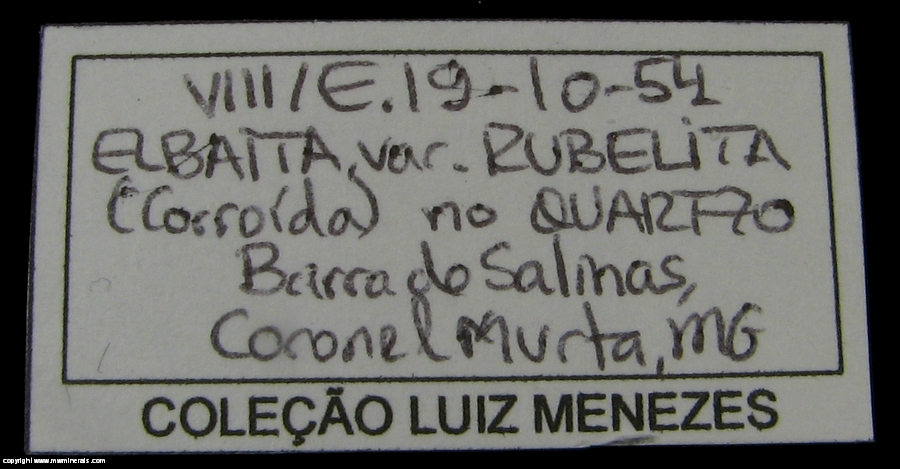 VIII/E.19-10-54
ELBAITA, var. RUBELITA
(Corroída) no QUARTZO
Barra do Salinas,
Coronel Murta, MG
COLEÇÃO LUIZ MENEZES
copyright www.mwminerals.com